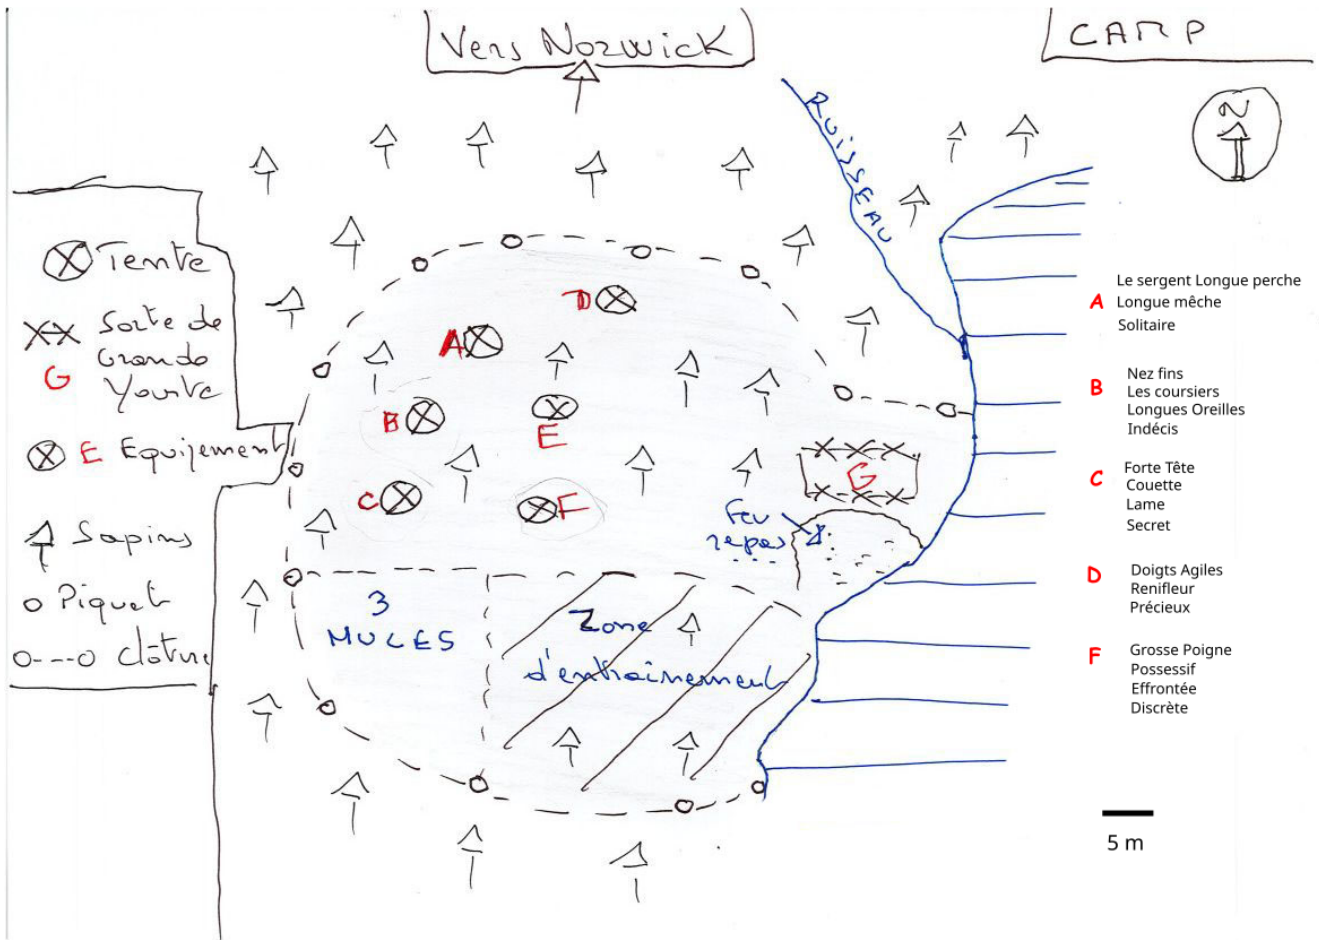 Vers Norwick
CAMP
N
RUISSEAU
Tente
Sorte de
Grande
Yourte
G
E Equipement
Sapins
o Piquet
o---o clôture
D
A
B
E
C
F
G
Feu
repas
3
MULES
Zone
d'entrainement
Le sergent Longue perche
A Longue mêche
Solitaire
Nez fins
B Les coursiers
Longues Oreilles
Indécis
Forte Tête
C Couette
Lame
Secret
D Doigts Agiles
Renifleur
Précieux
F Grosse Poigne
Possessif
Effrontée
Discrète
5 m